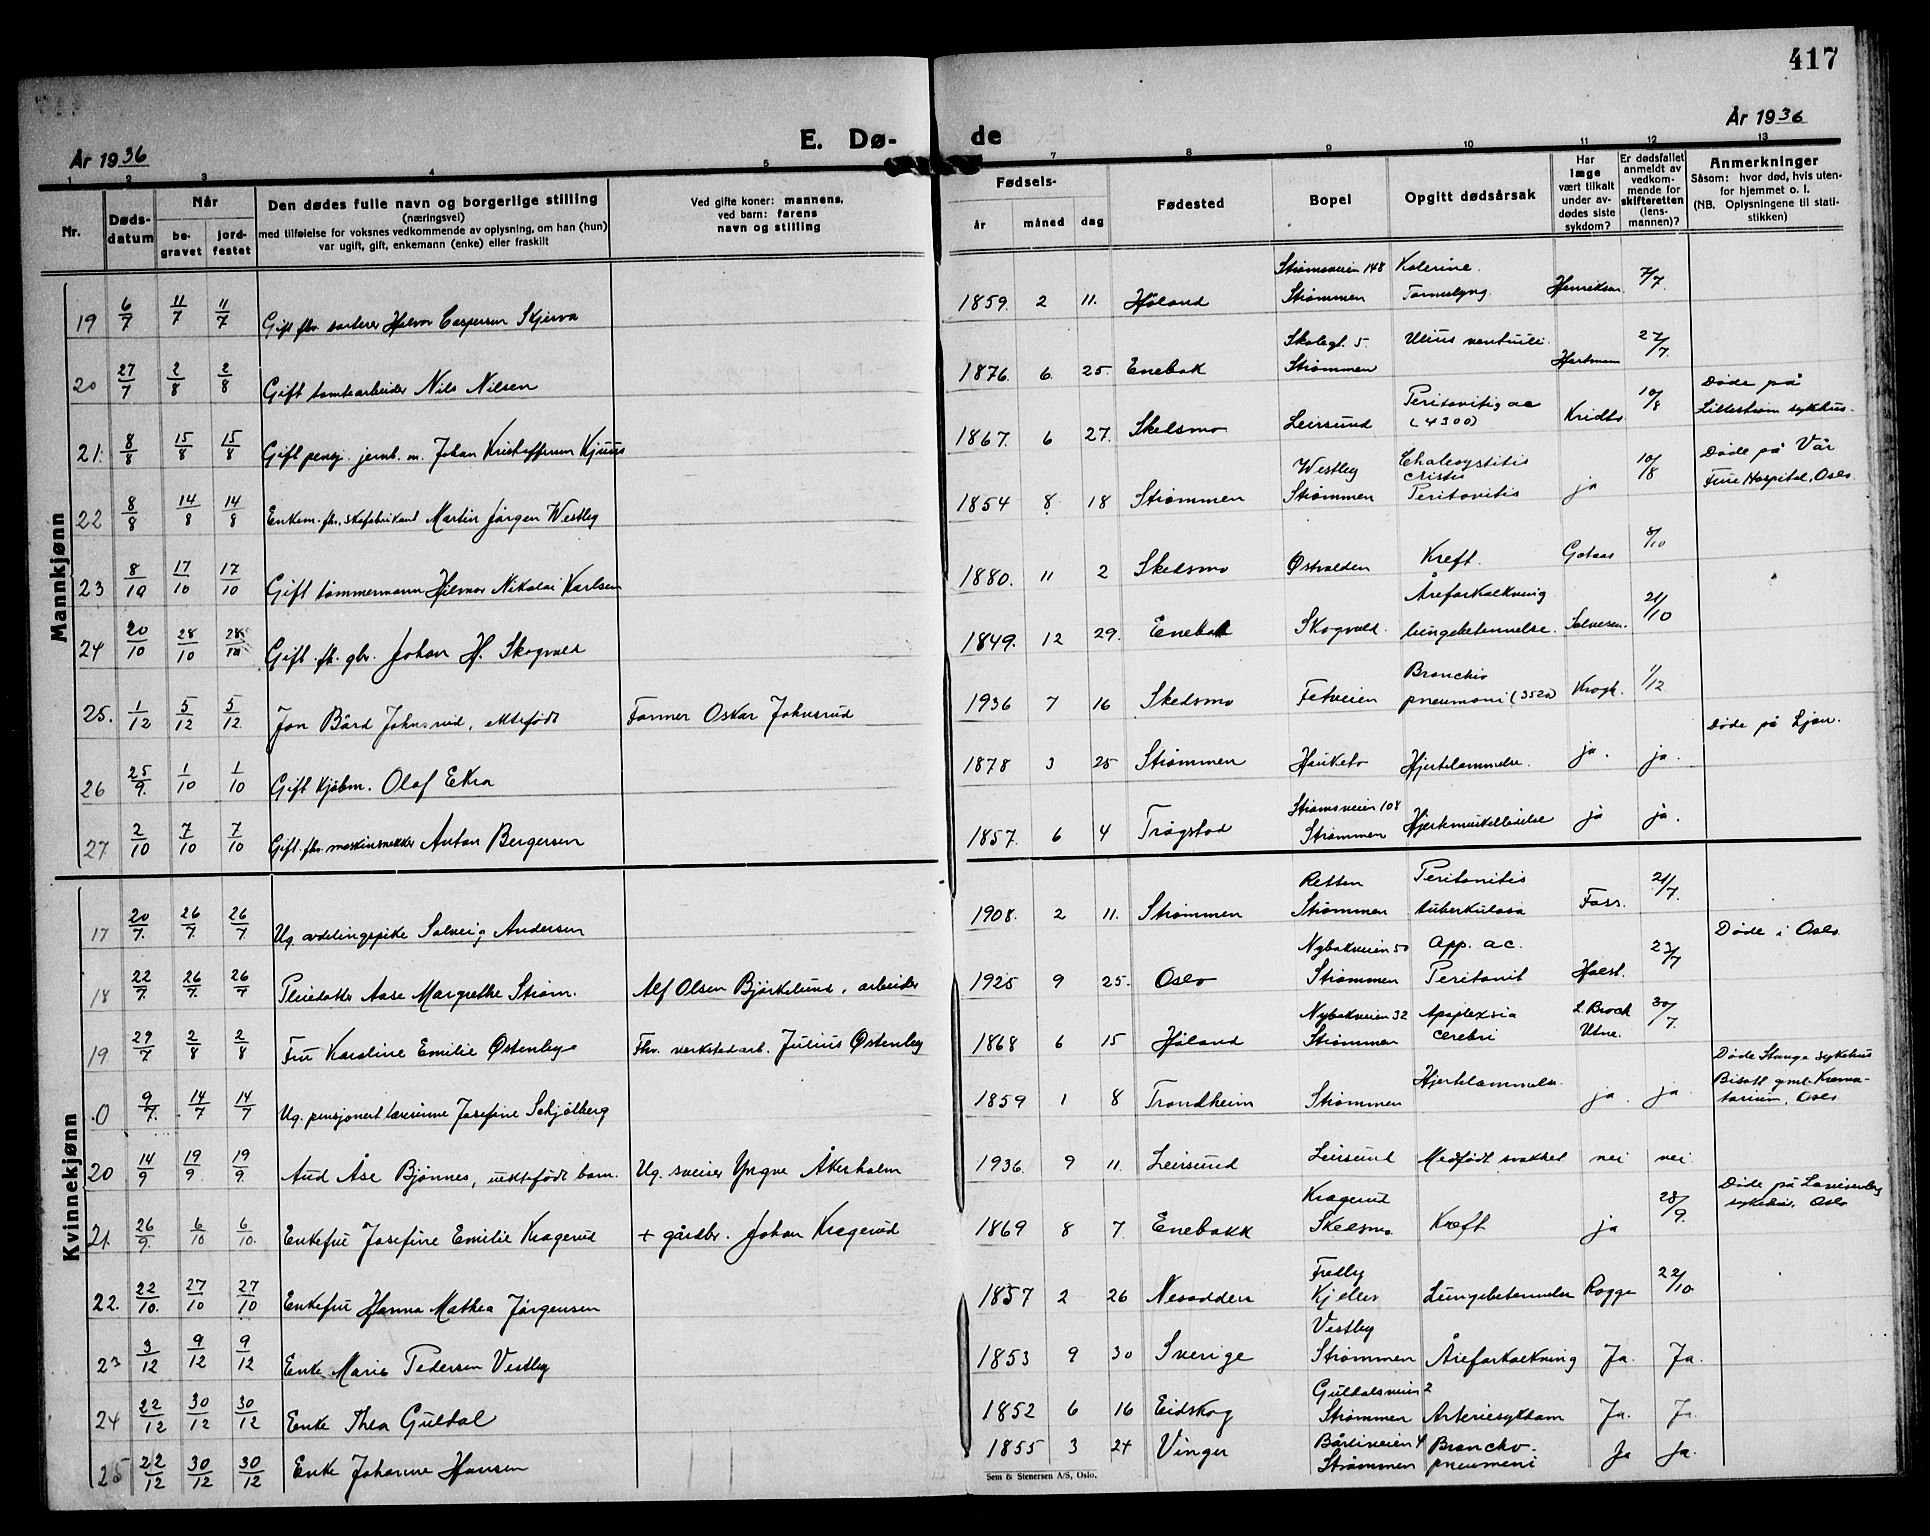 417
E. Dø- de
År 1936
År 1936
1 2 3 4 5 7 8 9 10 11 12 13
Nr.
Døds-
datum
Når
be-
gravet
jord-
festet
Den dødes fulle navn og borgerlige stilling
(næringsvei)
med tilføielse for voksnes vedkommende av oplysning, om han (hun)
var ugift, gift, enkemann (enke) eller fraskilt
Ved gifte koner: mannens,
ved barn: farens
navn og stilling
Fødsels-
år måned dag
Fødested
Bopel
Opgitt dødsårsak
Har
læge
vært tilkalt
under av-
dødes siste
sykdom?
Er dødsfallet
anmeldt av
vedkom-
mende for
skifteretten
(lens-
mannen)?
Anmerkninger
Såsom: hvor død, hvis uten-
for hjemmet o. l.
(NB. Oplysningene til stati-
stikken)
Mannkjønn
Strømsveien 148
19 6/7 11/7 11/7 Gift fhv. sorterer Halvor Caspersen Skjerva 1859. 2 11. Høland Strømmen Henriksen 7/7.
Skolegt. 5.
20 27/7 2/8 2/8 Gift tomtearbeider Nils Nilsen 1876. 6. 25. Enebak Strømmen Hartman 27/7.
Døde på
21. 8/8 15/8 15/8 Gift pensj. jernb. m. Johan Kristoffersen Kjuus 1867. 6 27. Skedsmo Leirsund Peritonitis ac (4300) 10/8 Lillestrøm sykehus.
Westby
Døde på Vår
22 8/8 14/8 14/8 Enkem. fhv. skofabrikant Martin Jørgen Westby 1854 8 18 Strømmen Strømmen Peritonitis ja 10/8 Frue Hospital, Oslo
23 8/10 17/10 17/10 Gift tømmermann Hilmar Nikolai Karlsen 1880. 11 2 Skedsmo Østvolden Kreft. Gotaas 8/10
Åreforkalkning
24 20/10 28/10 28/10 Gift. fh. gbr. Johan H. Skogvold 1849. 12 29. Enebak Skogvold lungebetennelse. Salvesen. 21/10
Broncho
25. 1/12 5/12 5/12 Jon Bård Johnsrud, ektefødt Former Oskar Johnsrud 1936 7 16 Skedsmo Fetveien pneumoni (3520) Krogh. 1/12
Døde på Ljan.
26 25/9. 1/10 1/10 Gift kjøbm. Olaf Ekra 1878 3 25 Strømmen Hauketo Hjertelammelse. ja. ja.
Strømsveien 108
27 2/10 7/10 7/10 Gift. fhv. maskinsnekker Anton Bergersen 1857. 6 4 Trøgstad Strømmen Hjertemuskellidelse ja ja.
Kvinnekjønn
Retten Peritonitis
17 20/7. 26/7. 26/7. Ug. avdelingspike Solveig Andersen 1908. 2 11. Strømmen Strømmen tuberkulosa Foss. 21/7.
Døde i Oslo
Nybakveien 50 App. ac.
18 22/7. 26/7. 26/7 Pleiedatter Aase Margrethe Strøm. Alf Olsen Björkelund, arbeider 1925 9 25. Oslo Strømmen Peritonit Holst. 23/7
Nybakveien 32 Apoplexia L. Broch
19 29/7 2/8 2/8 Fru Karoline Emilie Østenbye Fhv. verkstedarb. Julius Østenby 1868 6 15 Høland Strømmen cerebri Utne. 30/7.
Døde Stange sykehus
Bisatt gml. Krema-
torium, Oslo
0 9/7. 14/7 14/7 Ug. pensjonert lærerinne Josefine Schjølberg 1859 1 8 Trondheim Strømmen Hjertelammelse ja. ja.
20 14/9 19/9 19/9. Aud Åse Bjønnes, uektefødt barn. Ug. sveiser Yngve Åkerholm 1936. 9 11. Leirsund Leirsund Medfødt svakhet nei nei
Kragerud
Døde på Lovisenberg
21. 26/9. 6/10 6/10. Enkefru Josefine Emilie Kragerud + gårdbr. Johan Kragerud 1869 8 7. Enebakk Skedsmo Kreft ja 28/9. sykehus, Oslo
Fredly
22. 22/10. 27/10 27/10 Enkefru Hanna Mathea Jørgensen 1857 2 26 Nesodden Kjeller Lungebetennelse Rogge 22/10.
Vestby
23 3/12 9/12 9/12 Enke Marie Pedersen Vestby 1853 9 30 Sverige Strømmen Åreforkalkning Ja. Ja.
Guldalsveien 2
24 22/12 30/12 30/12 Enke Thea Guldal 1852 6 16 Eidskog Strømmen Arteriesykdom Ja. Ja.
Bårliveien 4 Broncho-
25 22/12 30/12 30/12 Enke Johanne Hansen 1855 3 24 Vinger Strømmen pneumoni Ja ja.
Sem & Stenersen A/S, Oslo.